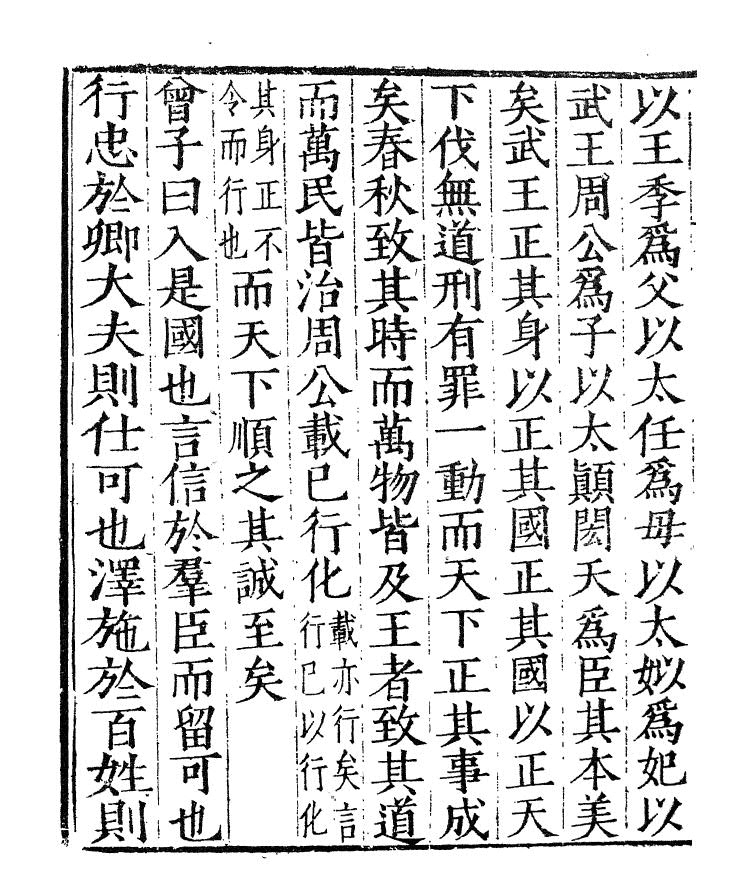 以王季爲父以太任爲母以太姒爲妃以
武王周公爲子以太顚閎夭爲臣其本美
矣武王正其身以正其國正其國以正天
下伐無道刑有罪一動而天下正其事成
矣春秋致其時而萬物皆及王者致其道
而萬民皆治周公載己行化載亦行矣言行己以行化
其身正不令而行也而天下順之其誠至矣
曾子曰入是國也言信於羣臣而留可也
行忠於卿大夫則仕可也澤施於百姓則